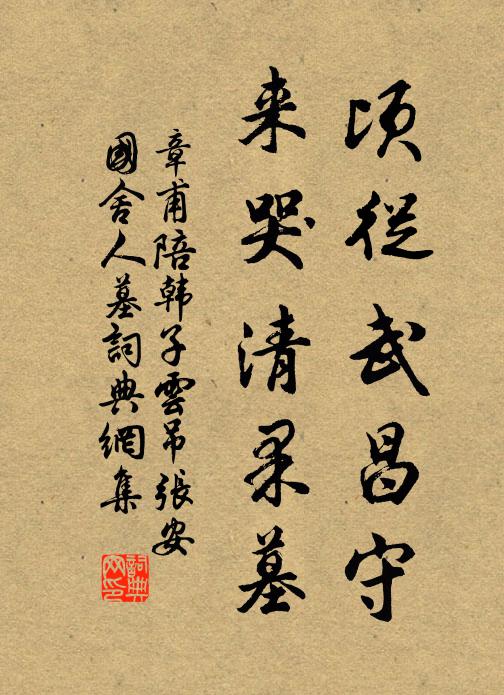 頃從武昌守
来哭清柔墓
章甫陪韩子雲吊張安
國舍人墓詞典網集
詞典网印